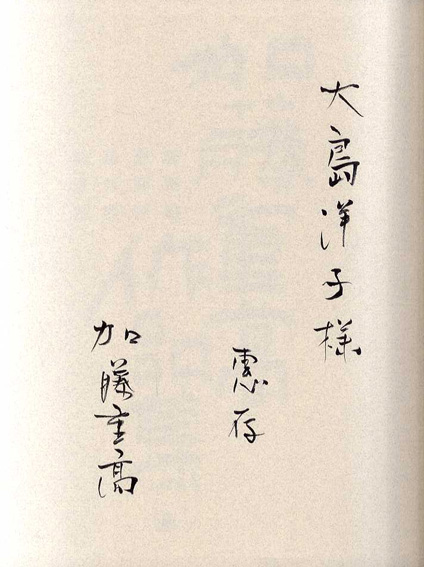 大島洋子様
恵存
加藤重高